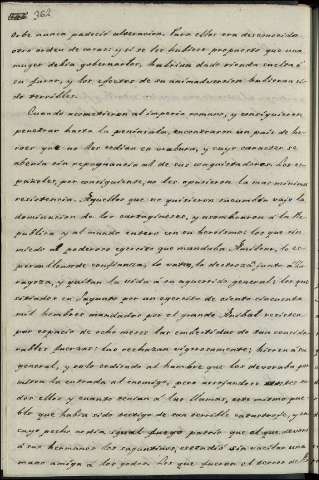 362
orbe nunca padeció alteración. Para ellos era desconocido
otro orden de cosas: y si se les hubiese propuesto que una
muger debia gobernarlos, habrian dado rienda suelta á
su furor, y los efectos de su animadversion hubieran si-
do terribles.
Cuando acometieron al imperio romano, y consiguieron
penetrar hasta la península, encontraron un pais de he-
roes que no les cedian en bravura, y cuyo caracter se
avenia sin repugnancia al de sus conquistadores. Los es-
pañoles, por consiguiente, no les opusieron la mas mínima
resistencia. Aquellos que no quisieron sucumbir bajo la
dominacion de los cartagineses, y asombraron á la Re-
publica y al mundo entero con su heroismo: los que sin
miedo al poderoso ejercito que mandaba Amilcar, lo es-
peran llenos de confianza, lo baten, lo destrozan junto á
y quitan la vida á su aguerrido general; los que
sitiados en Sagunto por un ejercito de ciento cincuenta
mil hombres mandados por el grande Anibal resisten
por espacio de ocho meses las embestidas de tan conside-
rables fuerzas: las rechazan vigorosamente; hieren á su
general, y solo cediendo al hambre que los devoraba per-
miten la entrada al enemigo, pero arrojandose
ellos y cuanto tenian á las llamas, este mismo pue-
blo que habia sido testigo de tan terrible catastrofe, y en
cuyo pecho ardia igual fuego patrio que el que devoró
á sus hermanos los saguntinos, estendió sin vacilar una
mano amiga á los godos. Los que fueron el terror de